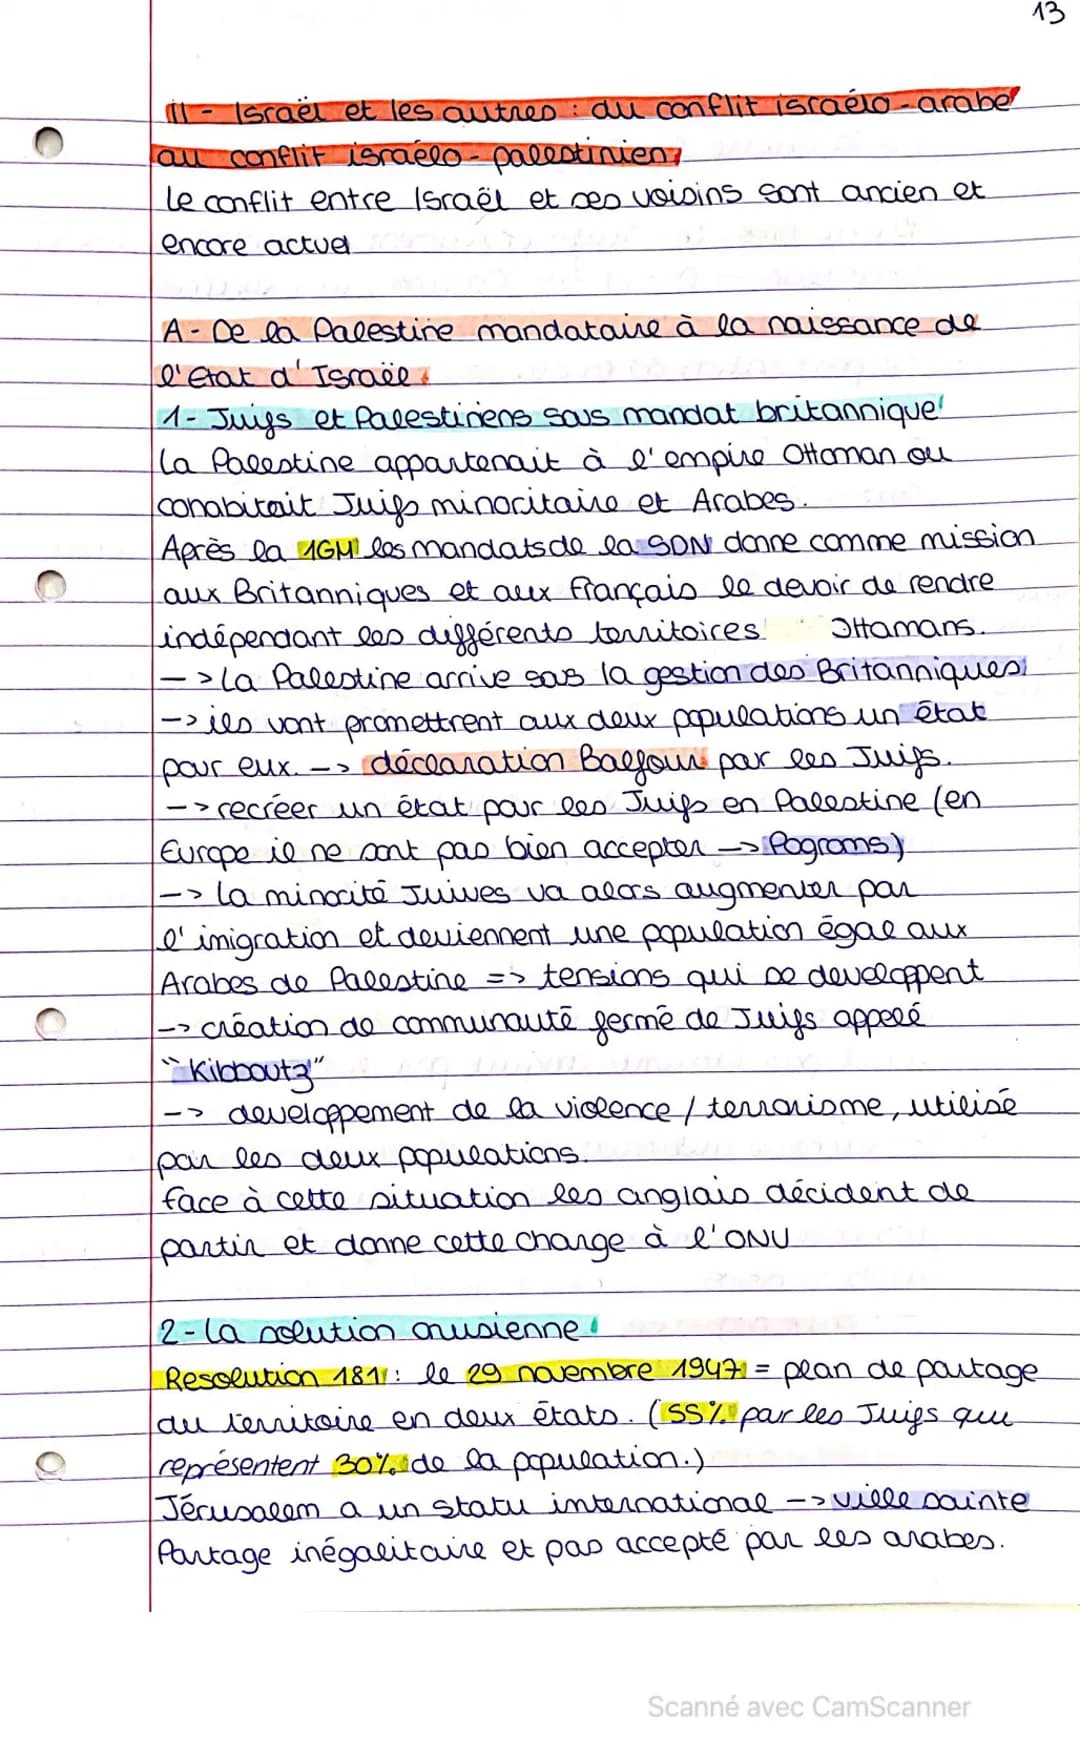 13
II - Israël et les autres : du conflit israélo-arabe
au conflit israélo-palestinien,
le conflit entre Israël et ses voisins sont ancien et
encore actuel
A - De la Palestine mandataire à la naissance de
l'Etat d'Israël
1- Juifs et Palestiniens sous mandat britannique
La Palestine appartenait à l'empire Ottoman ou
conabitait Juifs minoritaire et Arabes.
Après la 1GM les mandats de la SDN donne comme mission
aux Britanniques et aux français le devoir de rendre
indépendant les différents territoires Ottamans.
-> La Palestine arrive sous la gestion des Britanniques
-> ils vont promettrent aux deux populations un état
pour eux. -> déclaration Balfour par les Juifs.
-> recréer un état pour les Juifs en Palestine (en
Europe il ne sont pas bien accepter -> Pogroms)
-> la minorité Juives va alors augmenter par
l'imigration et deviennent une population égal aux
Arabes de Palestine => tensions qui se developpent
-> création de communauté fermé de Juifs appelé
"Kibboutz"
-> developpement de la violence / terrorisme, utilisé
par les deux populations.
face à cette situation les anglais décident de
partir et donne cette charge à l'ONU
2- La solution onusienne
Resolution 181 : le 29 novembre 1947 = plan de partage
du territoire en deux états. (55% par les Juifs qui
représentent 30% de la population.)
Jérusalem a un statu international -> ville sainte
Partage inégalitaire et pas accepté par les arabes.
Scanné avec CamScanner